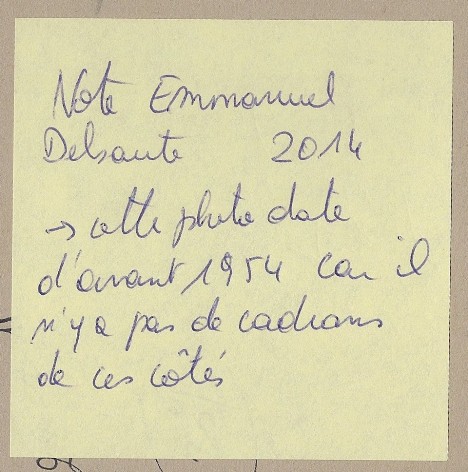 Note Emmanuel
Delsaute 2014
→ cette photo date
d'avant 1954 car il
n'y a pas de cadrans
de ces côtés